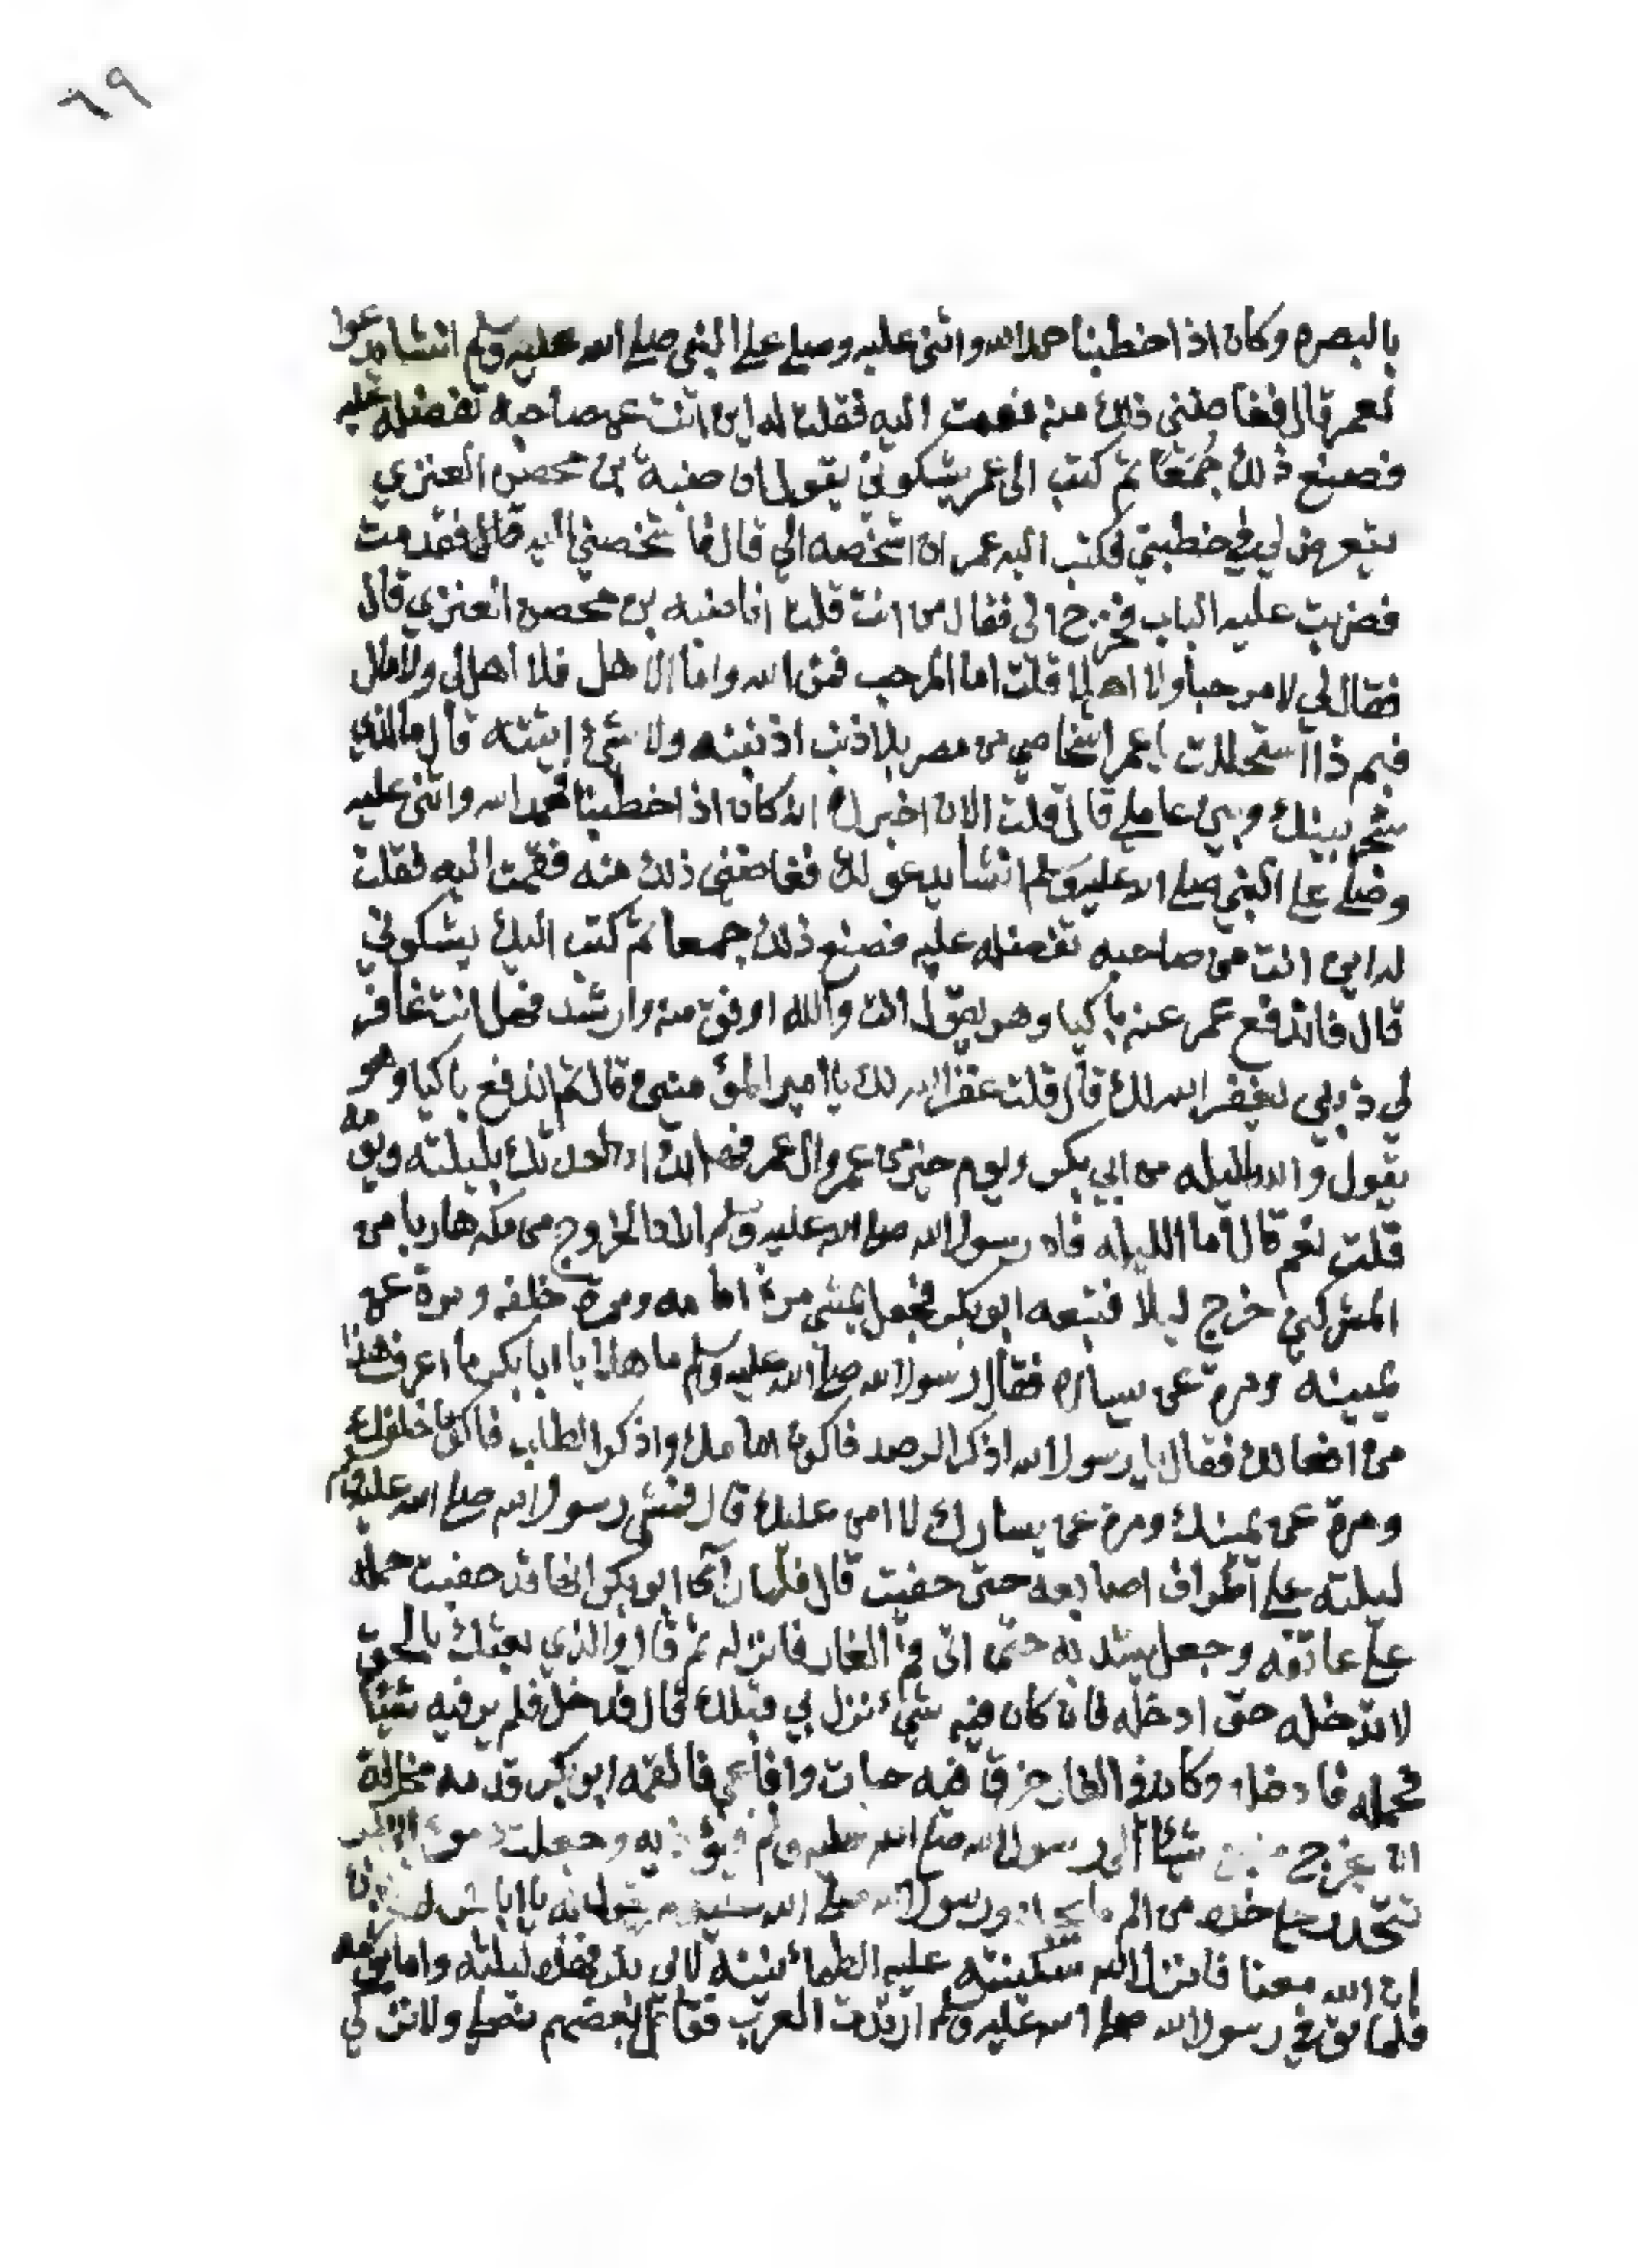 ٦٩
بالبصره وكان اذا خطبنا حمد الله واثنى عليه وصلى على النبي صلى الله عليه وسلم انشا يدعوا
لعمر قال فغاضني ذلك منه فقمت اليه فقلت له اين انت عن صاحبه تفضله عليه
فصنع ذلك جُمَعًا ثم كتب الى عمر يشكوني يقول ان ضبة بن محصن العنزي
يتعرض لي في خطبتي فكتب اليه عمر ان اشخصه الي قال فا شخصني اليه قال فقدمت
فضربت عليه الباب فخرج الي فقال من انت قلت انا ضبه بن محصن العنزي قال
فقال لي لا مرحبا ولا اهلا قلت اما المرحب فمن الله واما الاهل فلا اهل لي ولا مال
فبم ذا استحللت يا عمر اشخاصي من مصر بلا ذنب اذنبته ولا شئ اتيته قال ما الذي
شجر بينك وبين عاملي قال قلت الان اخبرك انه كان اذا خطبنا فحمد الله واثنى عليه
وصلى على النبي صلى الله عليه وسلم انشا يدعو لك فغاضني ذلك منه فقمت اليه فقلت
له اين انت من صاحبه تفضله عليه فصنع ذلك جمعا ثم كتب اليك يشكوني
قال فاندفع عمر عنه باكيا وهو يقول انت والله اوفق منه وارشد فهل انت غافر
لي ذنبي يغفر الله لك قال قلت غفر الله لك يا امير المؤمنين قال ثم اندفع باكيا وهو
يقول والله لليله من ابي بكر ويوم خير من عمر وال عمر فهل لك ان احدثك بليلته ويومه
قلت نعم قال اما الليله فان رسول الله صلى الله عليه وسلم لما اراد الخروج من مكه هاربا من
المشركين خرج ليلا فتبعه ابو بكر فجعل يمشي مرة امامه ومرة خلفه ومرة عن
يمينه ومرة عن يساره فقال رسول الله صلى الله عليه وسلم ما هذا يا ابا بكر ما اعرف هذا
من افعالك فقال يا رسول الله اذكر الرصد فاكون امامك واذكر الطلب فاكون خلفك
ومرة عن يمينك ومرة عن يسارك لا امن عليك قال فمشى رسول الله صلى الله عليه وسلم
ليلته على اطراف اصابعه حتى حفيت قال فلما رآها ابو بكر انها قد حفيت حمله
على عاتقه وجعل يشتد به حتى اتى فم الغار فانزله ثم قال والذي بعثك بالحق
لا تدخله حتى ادخله فان كان فيه شئ نزل بي قبلك قال فدخل فلم ير فيه شيئا
فحمله فادخله وكان في الغار خرق فيه حيات وافاعي فالقمه ابو بكر قدمه مخافة
ان يخرج منهن شيئا الى رسول الله صلى الله عليه وسلم فيؤذيه وجعلت دموع ابي بكر
تتحدر على خده من الم ما يجد ورسول الله صلى الله عليه وسلم يقول له يا ابا بكر لا تحزن
ان الله معنا فانزل الله سكينته عليه الطمائنينة لابي بكر فهذه ليلته واما يومه
فلما توفي رسول الله صلى الله عليه وسلم ارتدت العرب فقال بعضهم نصلي ولا نزكي